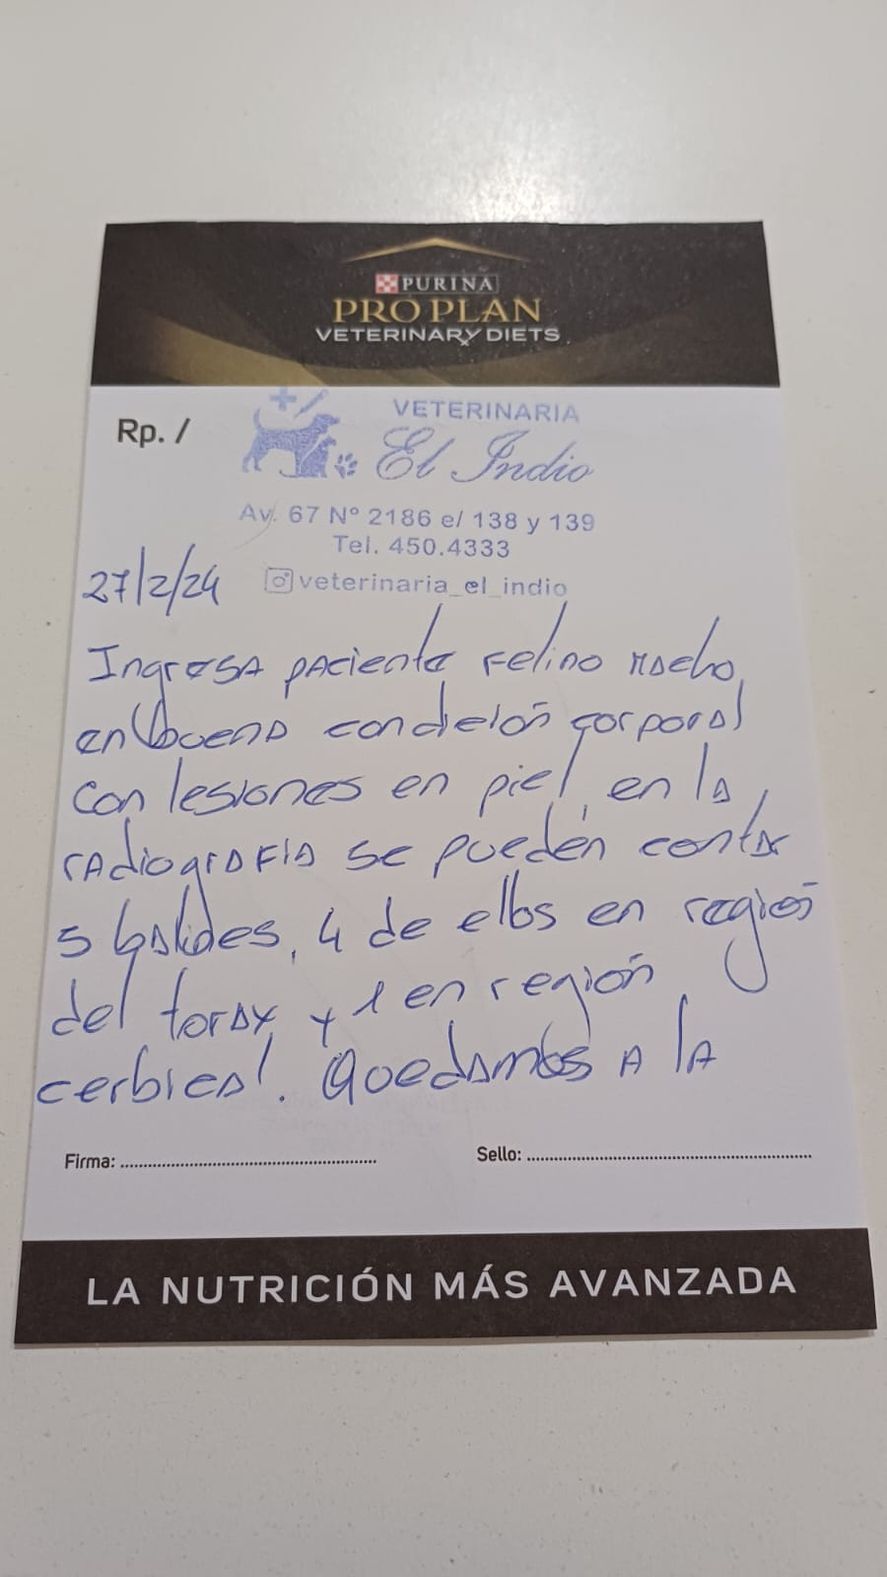 PURINA
PRO PLAN
VETERINARY DIETS
Rp. /
VETERINARIA
El Indio
Av. 67 Nº 2186 e/ 138 y 139
Tel. 450.4333
veterinaria_el_indio
27/2/24
Ingresa paciente Felino Macho,
en buena condición corporal
con lesiones en piel, en la
radiografía se pueden contar
5 balides, 4 de ellos en región
del torax y 1 en región
cerbical. Quedamos a la
Firma:
Sello:
LA NUTRICIÓN MÁS AVANZADA